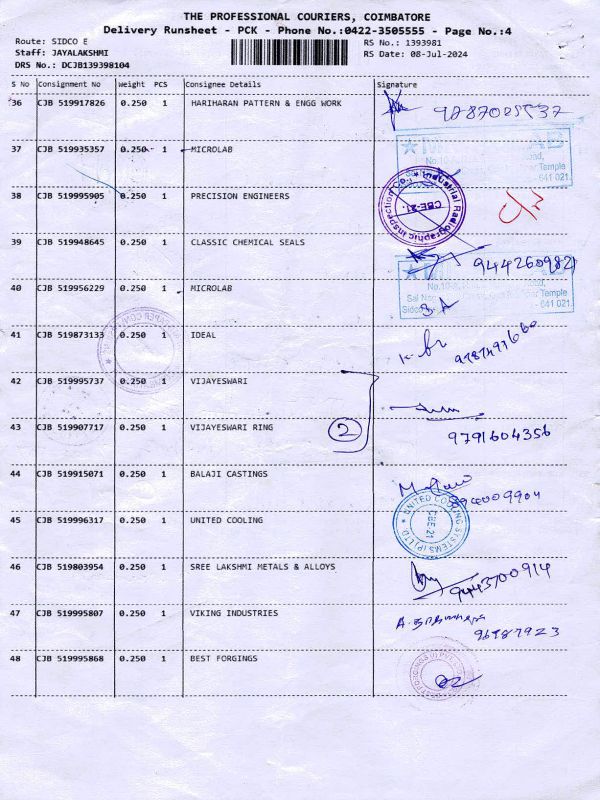 THE PROFESSIONAL COURIERS, COIMBATORE
Delivery Runsheet - PCK - Phone No.:0422-3505555 - Page No.:4
Route: SIDCO E
RS No.: 1393981
Staff: JAYALAKSHMI
RS Date: 08-Jul-2024
DRS No.: DCJB139398104
S No Consignment No Weight PCS Consignee Details Signature
36 CJB 519917826 0.250 1 HARIHARAN PATTERN & ENGG WORK
37 CJB 519935357 0.250 1 MICROLAB
Temple
- 641 021.
38 CJB 519995905 0.250 1 PRECISION ENGINEERS
Industrial Radiographic Inspection Co.,
CBE-21.
39 CJB 519948645 0.250 1 CLASSIC CHEMICAL SEALS
9442609821
40 CJB 519956229 0.250 1 MICROLAB
Temple
- 641 021.
41 CJB 519873133 0.250 1 IDEAL
42 CJB 519995737 0.250 1 VIJAYESWARI
43 CJB 519907717 0.250 1 VIJAYESWARI RING
2
9791604356
44 CJB 519915071 0.250 1 BALAJI CASTINGS
45 CJB 519996317 0.250 1 UNITED COOLING
UNITED COOLING SYSTEMS (P) LTD.
CBE-21
46 CJB 519803954 0.250 1 SREE LAKSHMI METALS & ALLOYS
9443700914
47 CJB 519995807 0.250 1 VIKING INDUSTRIES
48 CJB 519995868 0.250 1 BEST FORGINGS